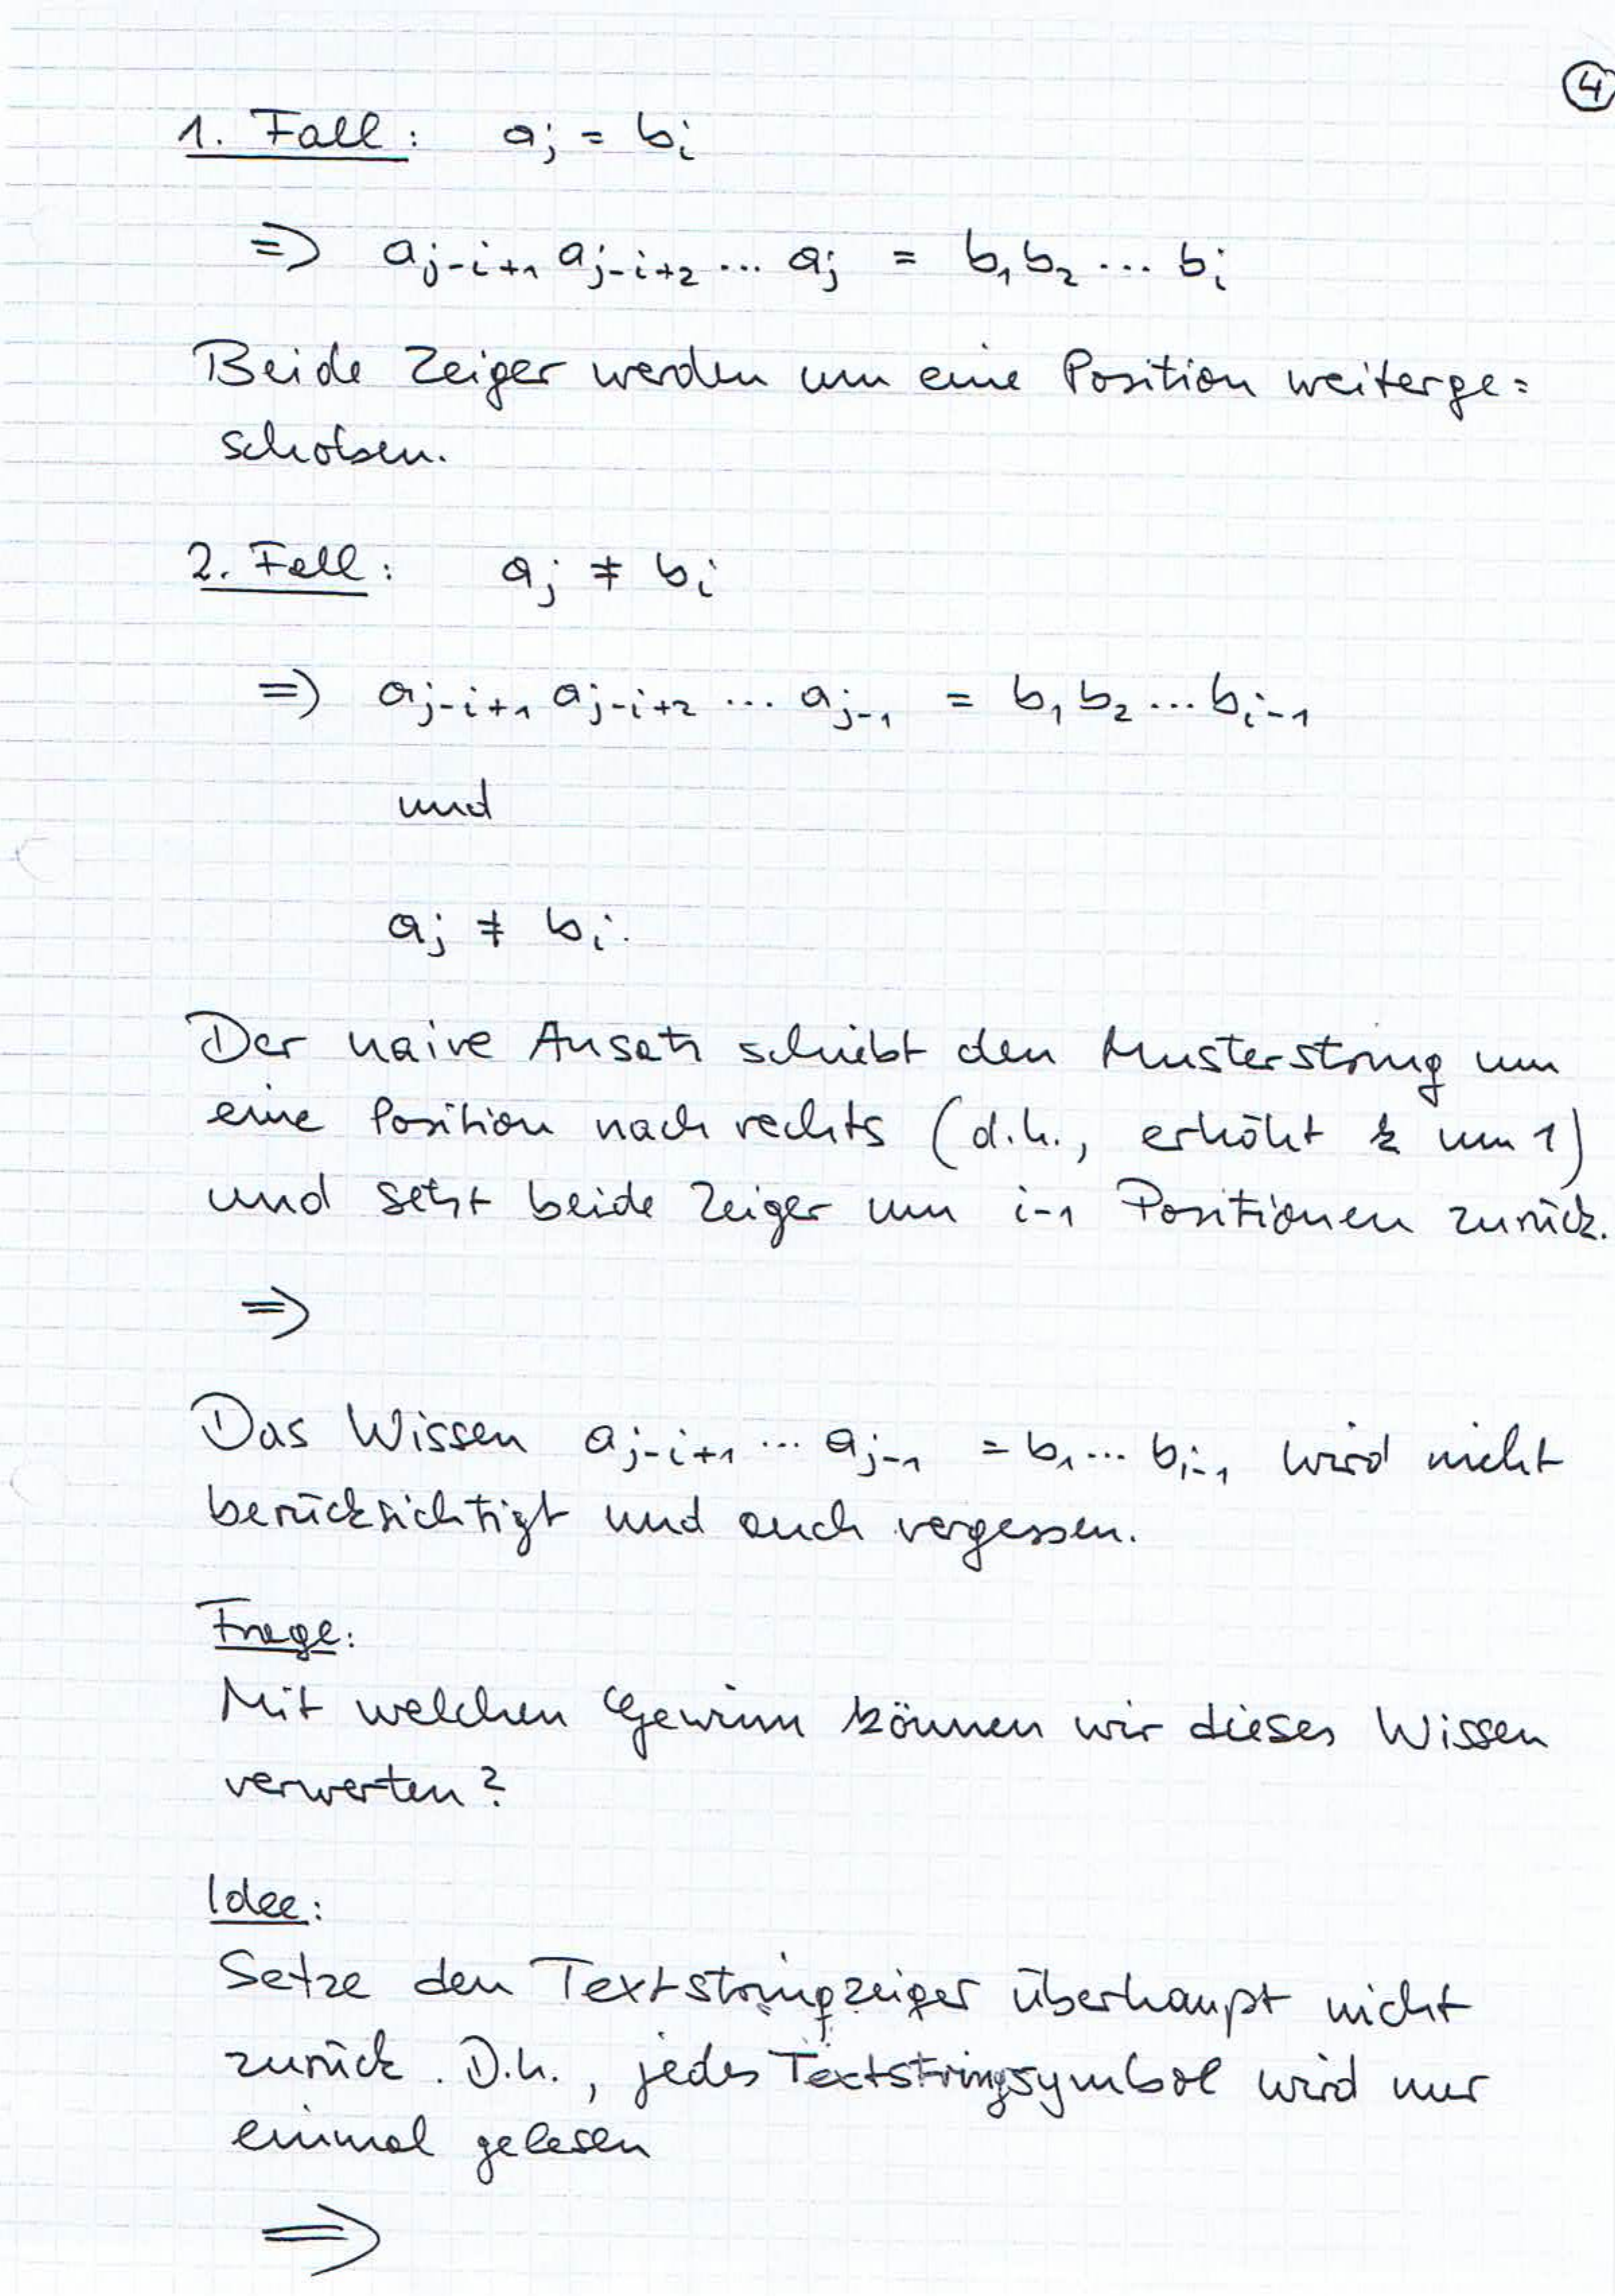 4
1. Fall: a_j = b_i
=> a_{j-i+1} a_{j-i+2} ... a_j = b_1 b_2 ... b_i
Beide Zeiger werden um eine Position weiterge=
schoben.
2. Fall: a_j ≠ b_i
=> a_{j-i+1} a_{j-i+2} ... a_{j-1} = b_1 b_2 ... b_{i-1}
und
a_j ≠ b_i.
Der naive Ansatz schiebt den Musterstring um
eine Position nach rechts (d.h., erhöht k um 1)
und setzt beide Zeiger um i-1 Positionen zurück.
=>
Das Wissen a_{j-i+1} ... a_{j-1} = b_1 ... b_{i-1} wird nicht
berücksichtigt und auch vergessen.
Frage:
Mit welchen Gewinn können wir dieses Wissen
verwerten?
Idee:
Setze den Textstringzeiger überhaupt nicht
zurück. D.h., jedes Textstringsymbol wird nur
einmal gelesen
=>